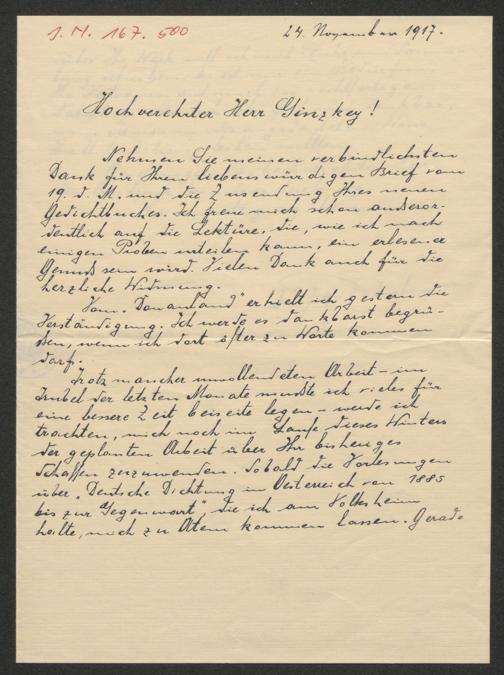 J. N. 167.500
24. November 1917.
Hochverehrter Herr Ginzkey!
Nehmen Sie meinen verbindlichsten
Dank für Ihren liebenswürdigen Brief vom
19. d. M. und die Zusendung Ihres neuen
Gedichtbuches. Ich freue mich schon außeror-
dentlich auf die Lektüre, die, wie ich nach
einigen Proben urteilen kann, ein erlesener
Genuss sein wird. Vielen Dank auch für die
herzliche Widmung.
Vom "Donauland" erhielt ich gestern die
Verständigung. Ich werde es dankbarst begrü-
ßen, wenn ich dort öfter zu Worte kommen
darf.
Trotz mancher unvollendeten Arbeit – im
Trubel der letzten Monate musste ich vieles für
eine bessere Zeit beiseite legen – werde ich
trachten, mich noch im Laufe dieses Winters
der geplanten Arbeit über Ihr bisheriges
Schaffen zuzuwenden. Sobald die Vorlesungen
über "Deutsche Dichtung in Oesterreich von 1885
bis zur Gegenwart", die ich am Volksheim
halte, mich zu Atem kommen lassen. Gerade